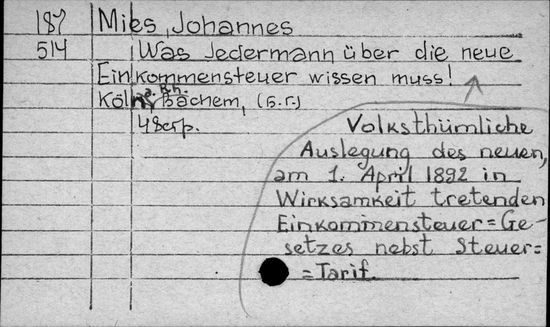 187 Mies, Johannes
514 Was Jedermann über die neue
Einkommensteuer wissen muss!
a. Rh.
Köln, Bachem, (s.г.)
48стр.
Volksthümliche
Auslegung des neuen,
am 1. April 1892 in
Wirksamkeit tretenden
Einkommensteuer=Ge-
setzes nebst Steuer=
=Tarif.